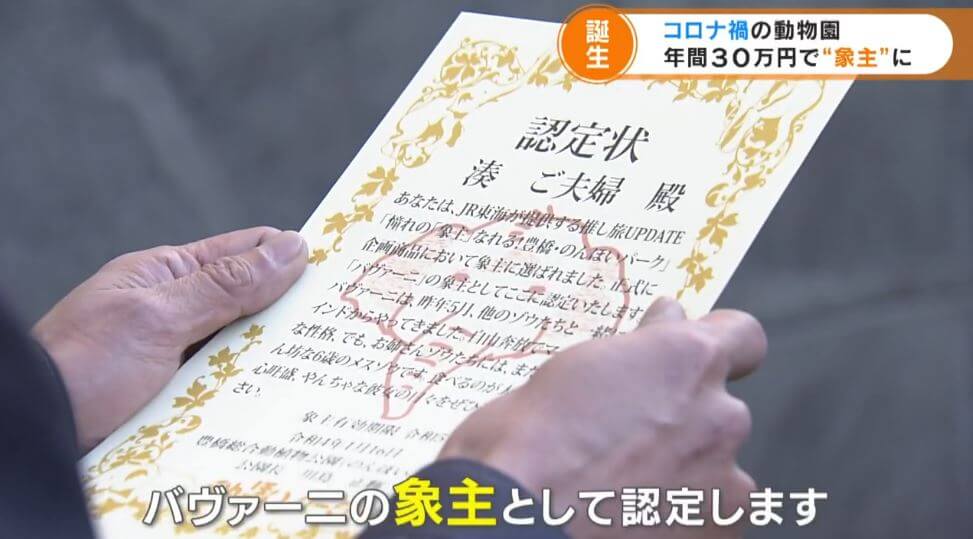 誕生
コロナ禍の動物園
年間30万円で“象主”に
認定状
湊 ご夫婦 殿
あなたは、JR東海が提供する推し旅UPDATE
「憧れの「象主」なれる!豊橋・のんほいパーク」
企画商品において象主に選ばれました。正式に
「バヴァーニ」の象主としてここに認定いたします
バヴァーニは、昨年5月、他のゾウたちと一緒
インドからやってきました。自由奔放でマ
な性格、でも、お姉さんゾウたちには、まだ
ん坊な6歳のメスゾウです。食べるのが
心旺盛、やんちゃな彼女の日々をぜひ
さい。
象主有効期限 令和5
令和4年1月16日
豊橋総合動植物公園(のんほい
公園長
バヴァーニの象主として認定します